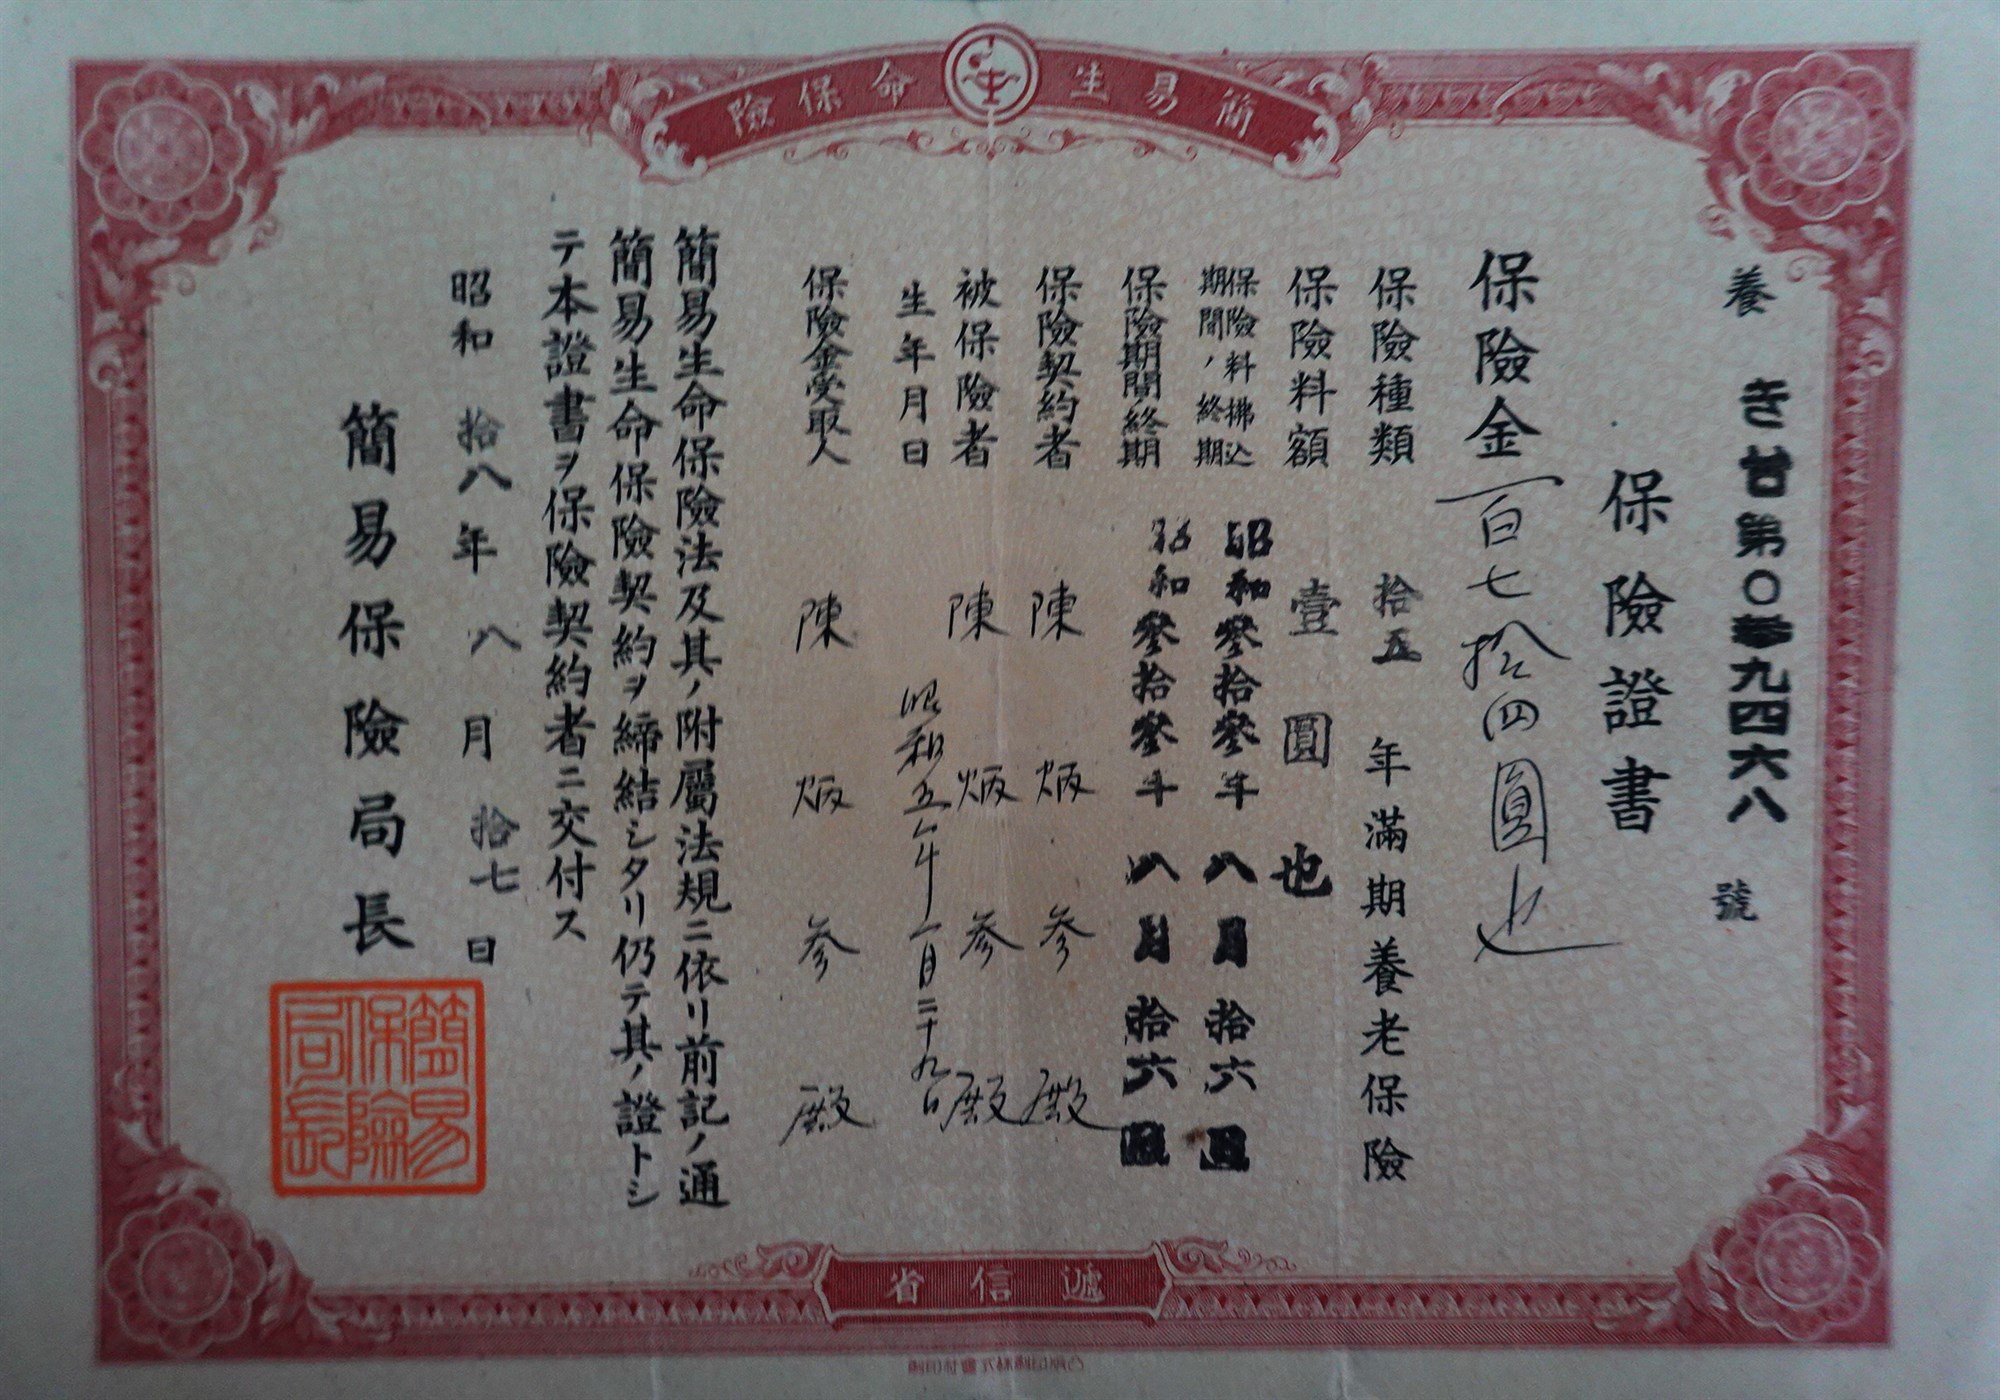 簡易生命保險
養 き廿第〇參九四六八 號
保險證書
保險金 百七拾四圓也
保險種類 拾五 年滿期養老保險
保險料額 壹圓也
保險料拂込期間ノ終期 昭和參拾參年八月拾六日
保險期間ノ終期 昭和參拾參年八月拾六日
保險契約者 陳炳参殿
被保險者 陳炳参殿
生年月日 昭和五年一月二十九日
保險金受取人 陳炳参殿
簡易生命保險法及其ノ附屬法規ニ依リ前記ノ通
簡易生命保險契約ヲ締結シタリ仍テ其ノ證トシ
テ本證書ヲ保險契約者ニ交付ス
昭和 拾八年 八月 拾七日
簡易保險局長
簡易保險局長
遞信省